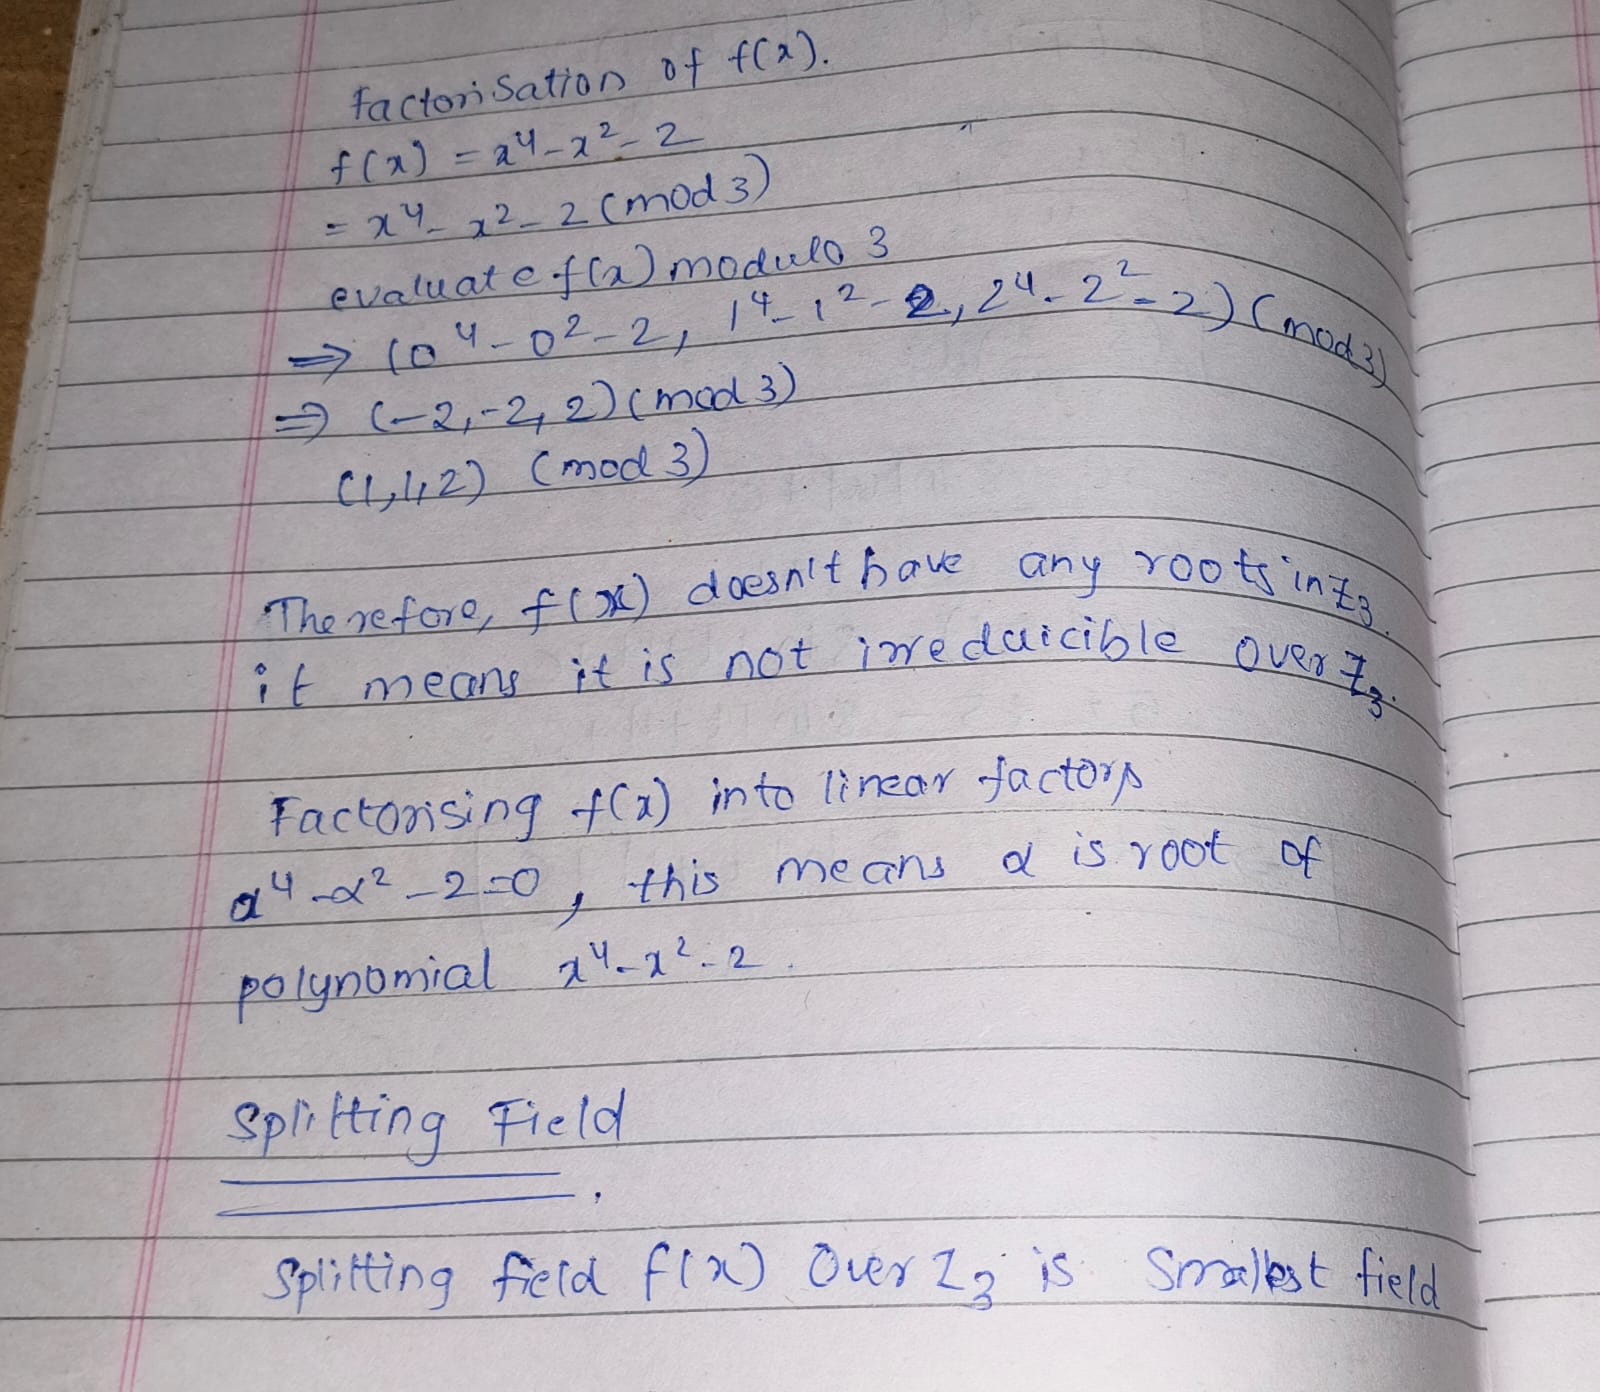 Factorisation of f(x).
f(x) = x⁴-x²-2
= x⁴-x²-2 (mod 3)
evaluate f(x) modulo 3
⇒ (0⁴-0²-2, 1⁴-1²-2, 2⁴-2²-2) (mod 3)
⇒ (-2,-2,2) (mod 3)
(1,1,2) (mod 3)
Therefore, f(x) doesn't have any roots in Z₃.
it means it is not irreduicible over Z₃.
Factorising f(x) into linear factors
α⁴-α²-2=0, this means α is root of
polynomial x⁴-x²-2.
Splitting Field
Splitting field f(x) Over Z₃ is Smallest field